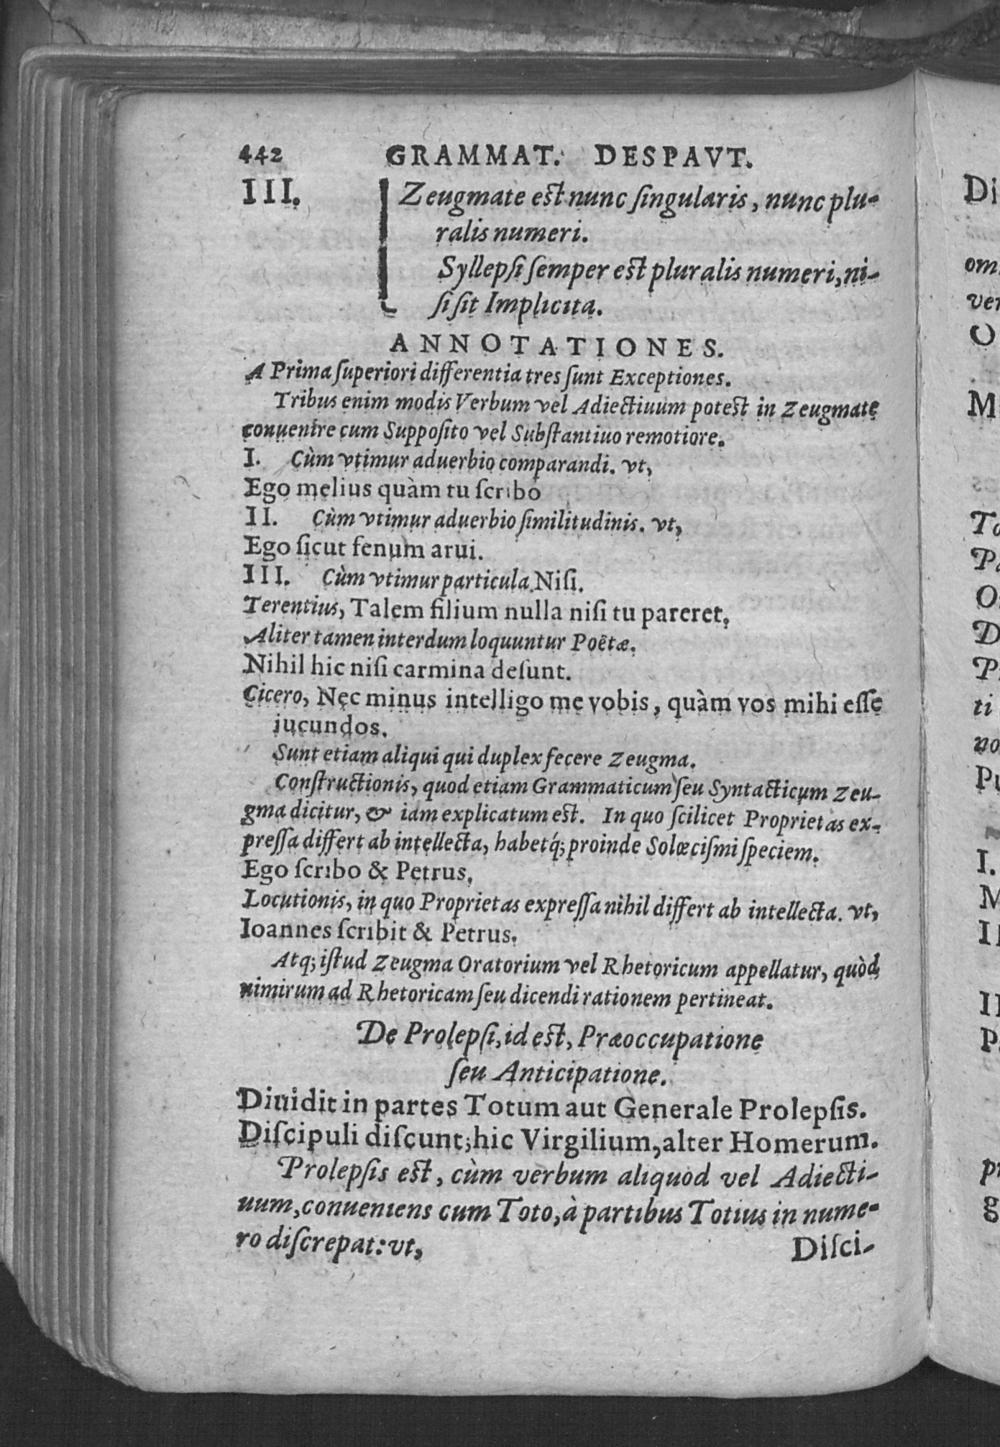 442 GRAMMAT. DESPAVT.
III. Zeugmate est nunc ſingularis, nunc plu-
ralis numeri.
Syllepſi ſemper est pluralis numeri, ni-
ſi ſit Implicita.
ANNOTATIONES.
A Prima ſuperiori differentia tres ſunt Exceptiones.
Tribus enim modis Verbum vel Adiectiuum potest in Zeugmate
conuenire cum Suppoſito vel Subſtantiuo remotiore.
I. Cùm vtimur aduerbio comparandi. vt,
Ego melius quàm tu ſcribo
II. Cùm vtimur aduerbio ſimilitudinis. vt,
Ego ſicut fenum arui.
III. Cùm vtimur particula Niſi.
Terentius, Talem filium nulla niſi tu pareret.
Aliter tamen interdum loquuntur Poëtæ.
Nihil hic niſi carmina deſunt.
Cicero, Nec minus intelligo me vobis, quàm vos mihi eſſe
iucundos.
Sunt etiam aliqui qui duplex fecere Zeugma.
Conſtructionis, quod etiam Grammaticum ſeu Syntacticum Zeu-
gma dicitur, & iam explicatum est. In quo ſcilicet Proprietas ex-
preſſa differt ab intellecta, habetq́; proinde Solœciſmi ſpeciem.
Ego ſcribo & Petrus.
Locutionis, in quo Proprietas expreſſa nihil differt ab intellecta. vt,
Ioannes ſcribit & Petrus.
Atq; iſtud Zeugma Oratorium vel Rhetoricum appellatur, quòd
nimirum ad Rhetoricam ſeu dicendi rationem pertineat.
De Prolepſi, id est, Præoccupatione
ſeu Anticipatione.
Diuidit in partes Totum aut Generale Prolepſis.
Diſcipuli diſcunt; hic Virgilium, alter Homerum.
Prolepſis est, cùm verbum aliquod vel Adiecti-
uum, conueniens cum Toto, à partibus Totius in nume-
ro diſcrepat: vt,
Diſci-